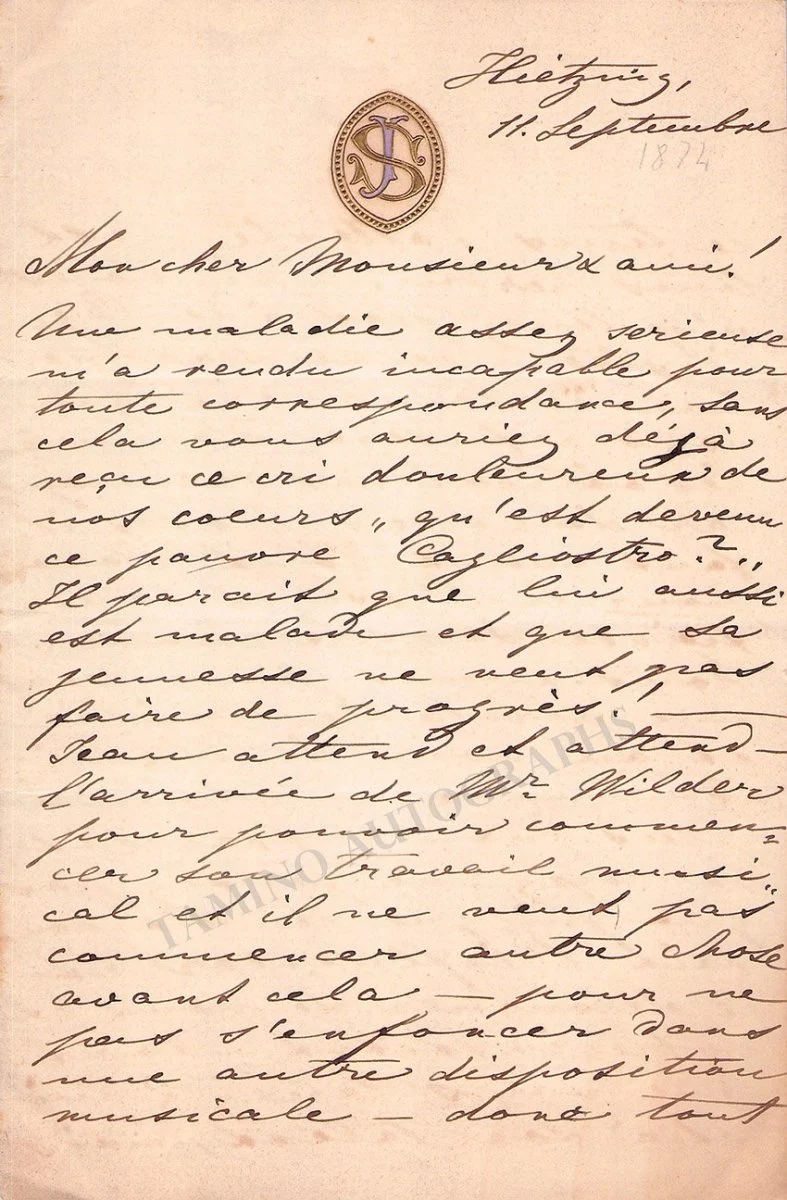 Hietzing,
11. Septembre
1874
JS
Mon cher Monsieur & ami!
Une maladie assez serieuse
m'a rendu incapable pour
toute correspondance, sans
cela vous auriez déjà
reçu ce cri douleureux de
nos coeurs „ qu'est devenu
ce pauvre Cagliostro?„
Il parait que lui aussi
est malade et que sa
jeunesse ne veut pas
faire de progrès! —
Jean attend et attend —
l'arrivée de Mr. Wilder
pour pouvoir commen=
cer son travail musi„
cal et il ne veut pas
commencer autre chose
avant cela — pour ne
pas s'enfoncer dans
une autre disposition
musicale — donc tout
TAMINO AUTOGRAPHS